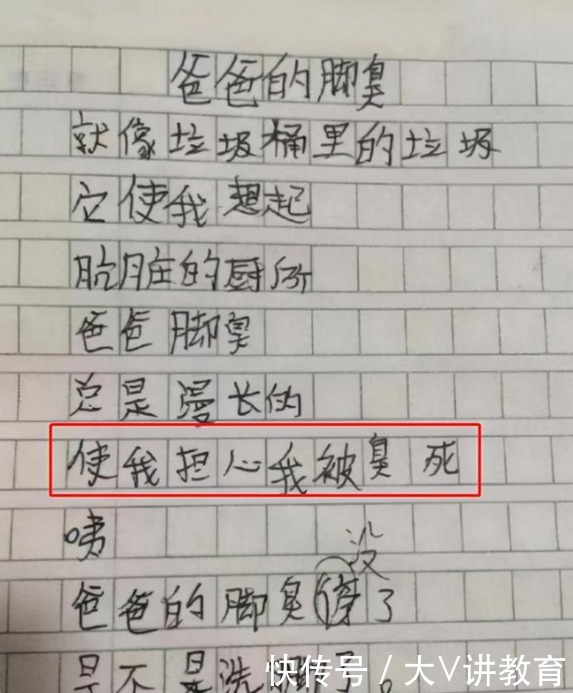 爸爸的脚臭
就像垃圾桶里的垃圾
它使我想起
肮脏的厨所
爸爸脚臭
总是漫长的
使我担心我被臭死
咦
没
爸爸的脚臭停了
是不是洗脚了。
快传号/大V讲教育